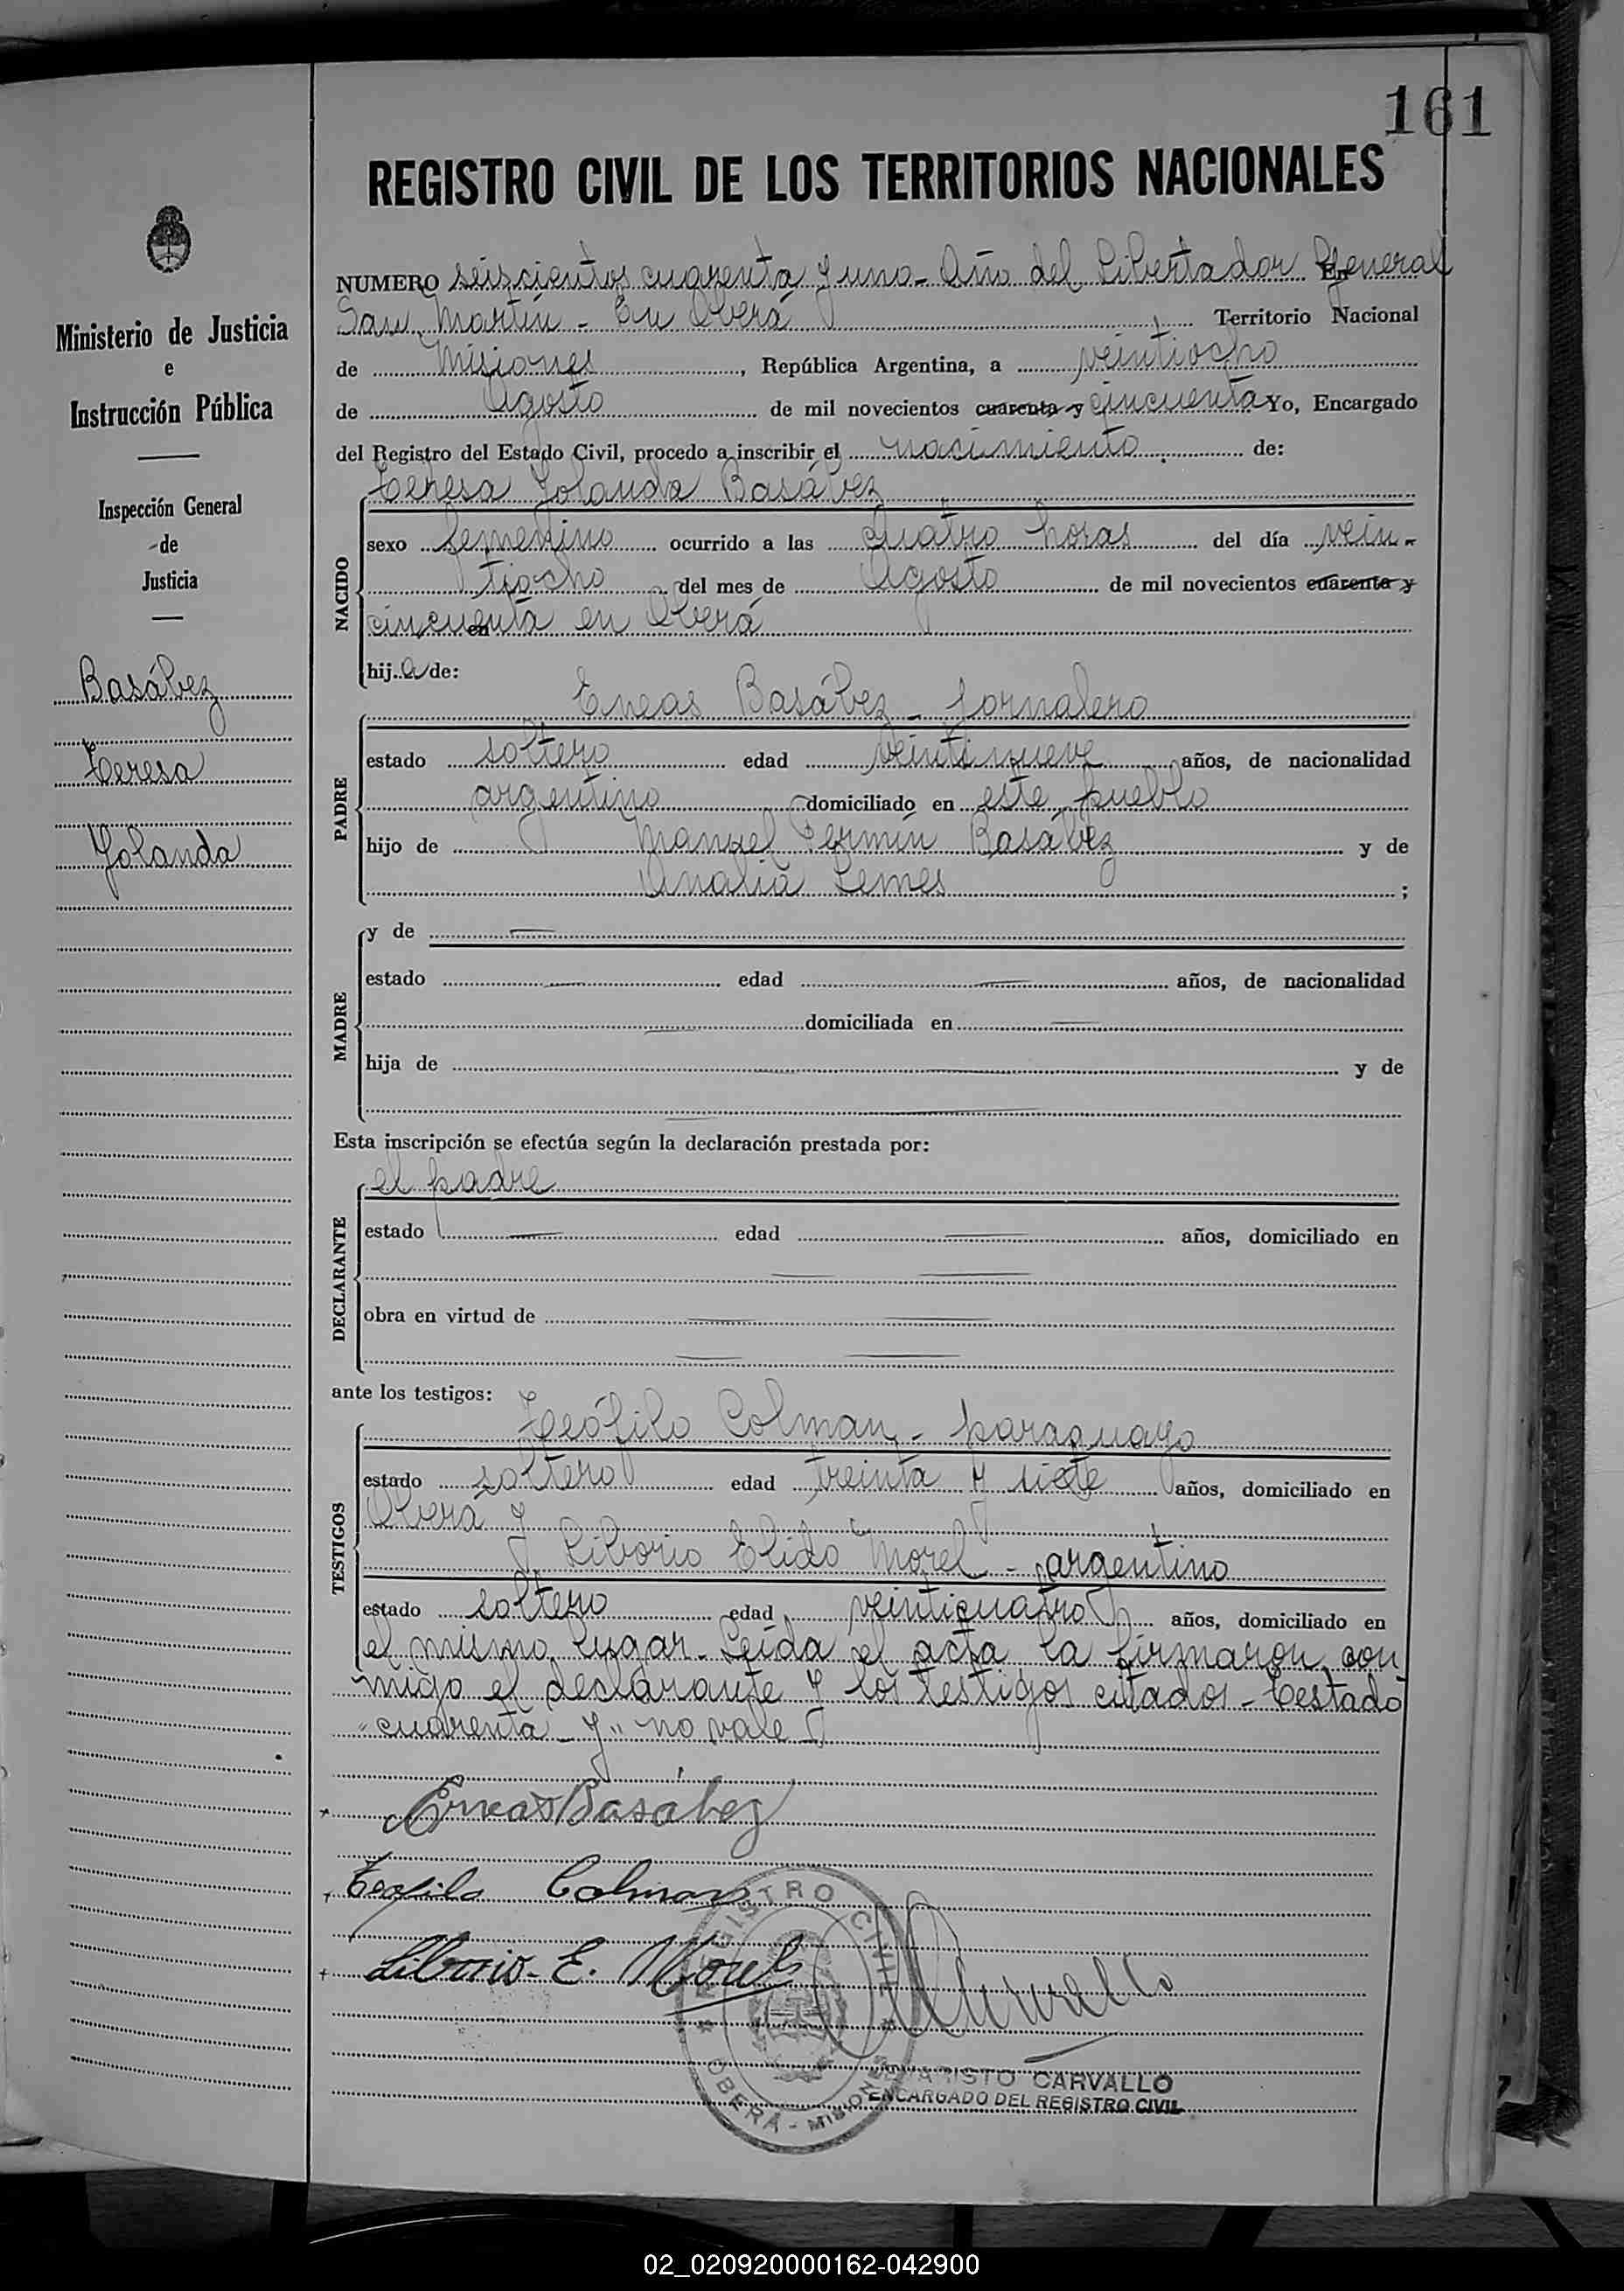 161
REGISTRO CIVIL DE LOS TERRITORIOS NACIONALES
Ministerio de Justicia
e
Instrucción Pública
Inspección General
de
Justicia
Basábez
Teresa
Yolanda
NUMERO seiscientos cuarenta y uno - Año del Libertador En General
San Martín - En Oberá Territorio Nacional
de Misiones, República Argentina, a veintiocho
de Agosto de mil novecientos cuarenta y cincuenta Yo, Encargado
del Registro del Estado Civil, procedo a inscribir el nacimiento de:
Teresa Yolanda Basábez
NACIDO
sexo femenino ocurrido a las cuatro horas del día vein-
tiocho del mes de Agosto de mil novecientos cuarenta y
cincuenta en en Oberá
hija de:
Eneas Basábez - jornalero
PADRE
estado soltero edad veintinueve años, de nacionalidad
argentino domiciliado en este pueblo
hijo de Manuel Fermín Basábez y de
Analia Lemes ;
MADRE
y de
estado edad años, de nacionalidad
domiciliada en
hija de y de
Esta inscripción se efectúa según la declaración prestada por:
el padre
DECLARANTE
estado edad años, domiciliado en
obra en virtud de
ante los testigos:
Teófilo Colman - paraguayo
TESTIGOS
estado soltero edad treinta y siete años, domiciliado en
Oberá y
Liborio Elido Morel - argentino
estado soltero edad veinticuatro años, domiciliado en
el mismo lugar - Leída el acta la firmaron con
migo el declarante y los testigos citados - Testado
"cuarenta y" no vale
Eneas Basábez
Teofilo Colman
Liborio E. Morel
REGISTRO CIVIL
OBERÁ - MISIONES
EVARISTO CARVALLO
ENCARGADO DEL REGISTRO CIVIL
02_020920000162-042900